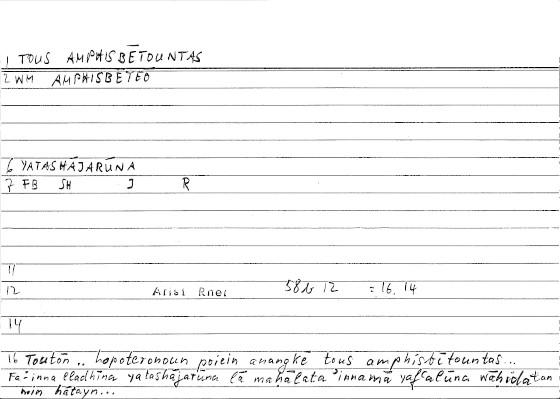 1 TOUS AMPHISBĒTOUNTAS
2 WM AMPHISBĒTEO
6 YATASHĀJARŪNA
7 FB SH J R
11
12 Arist Rhet 58b 12 = 16, 14
14
16 Toutōn .. hopoteronoun poiein anangkē tous amphisbētountas...
Fa-inna lladhīna yatashājarūna lā mahālata 'innamā yaf'alūna wāhidatan
min hātayn...